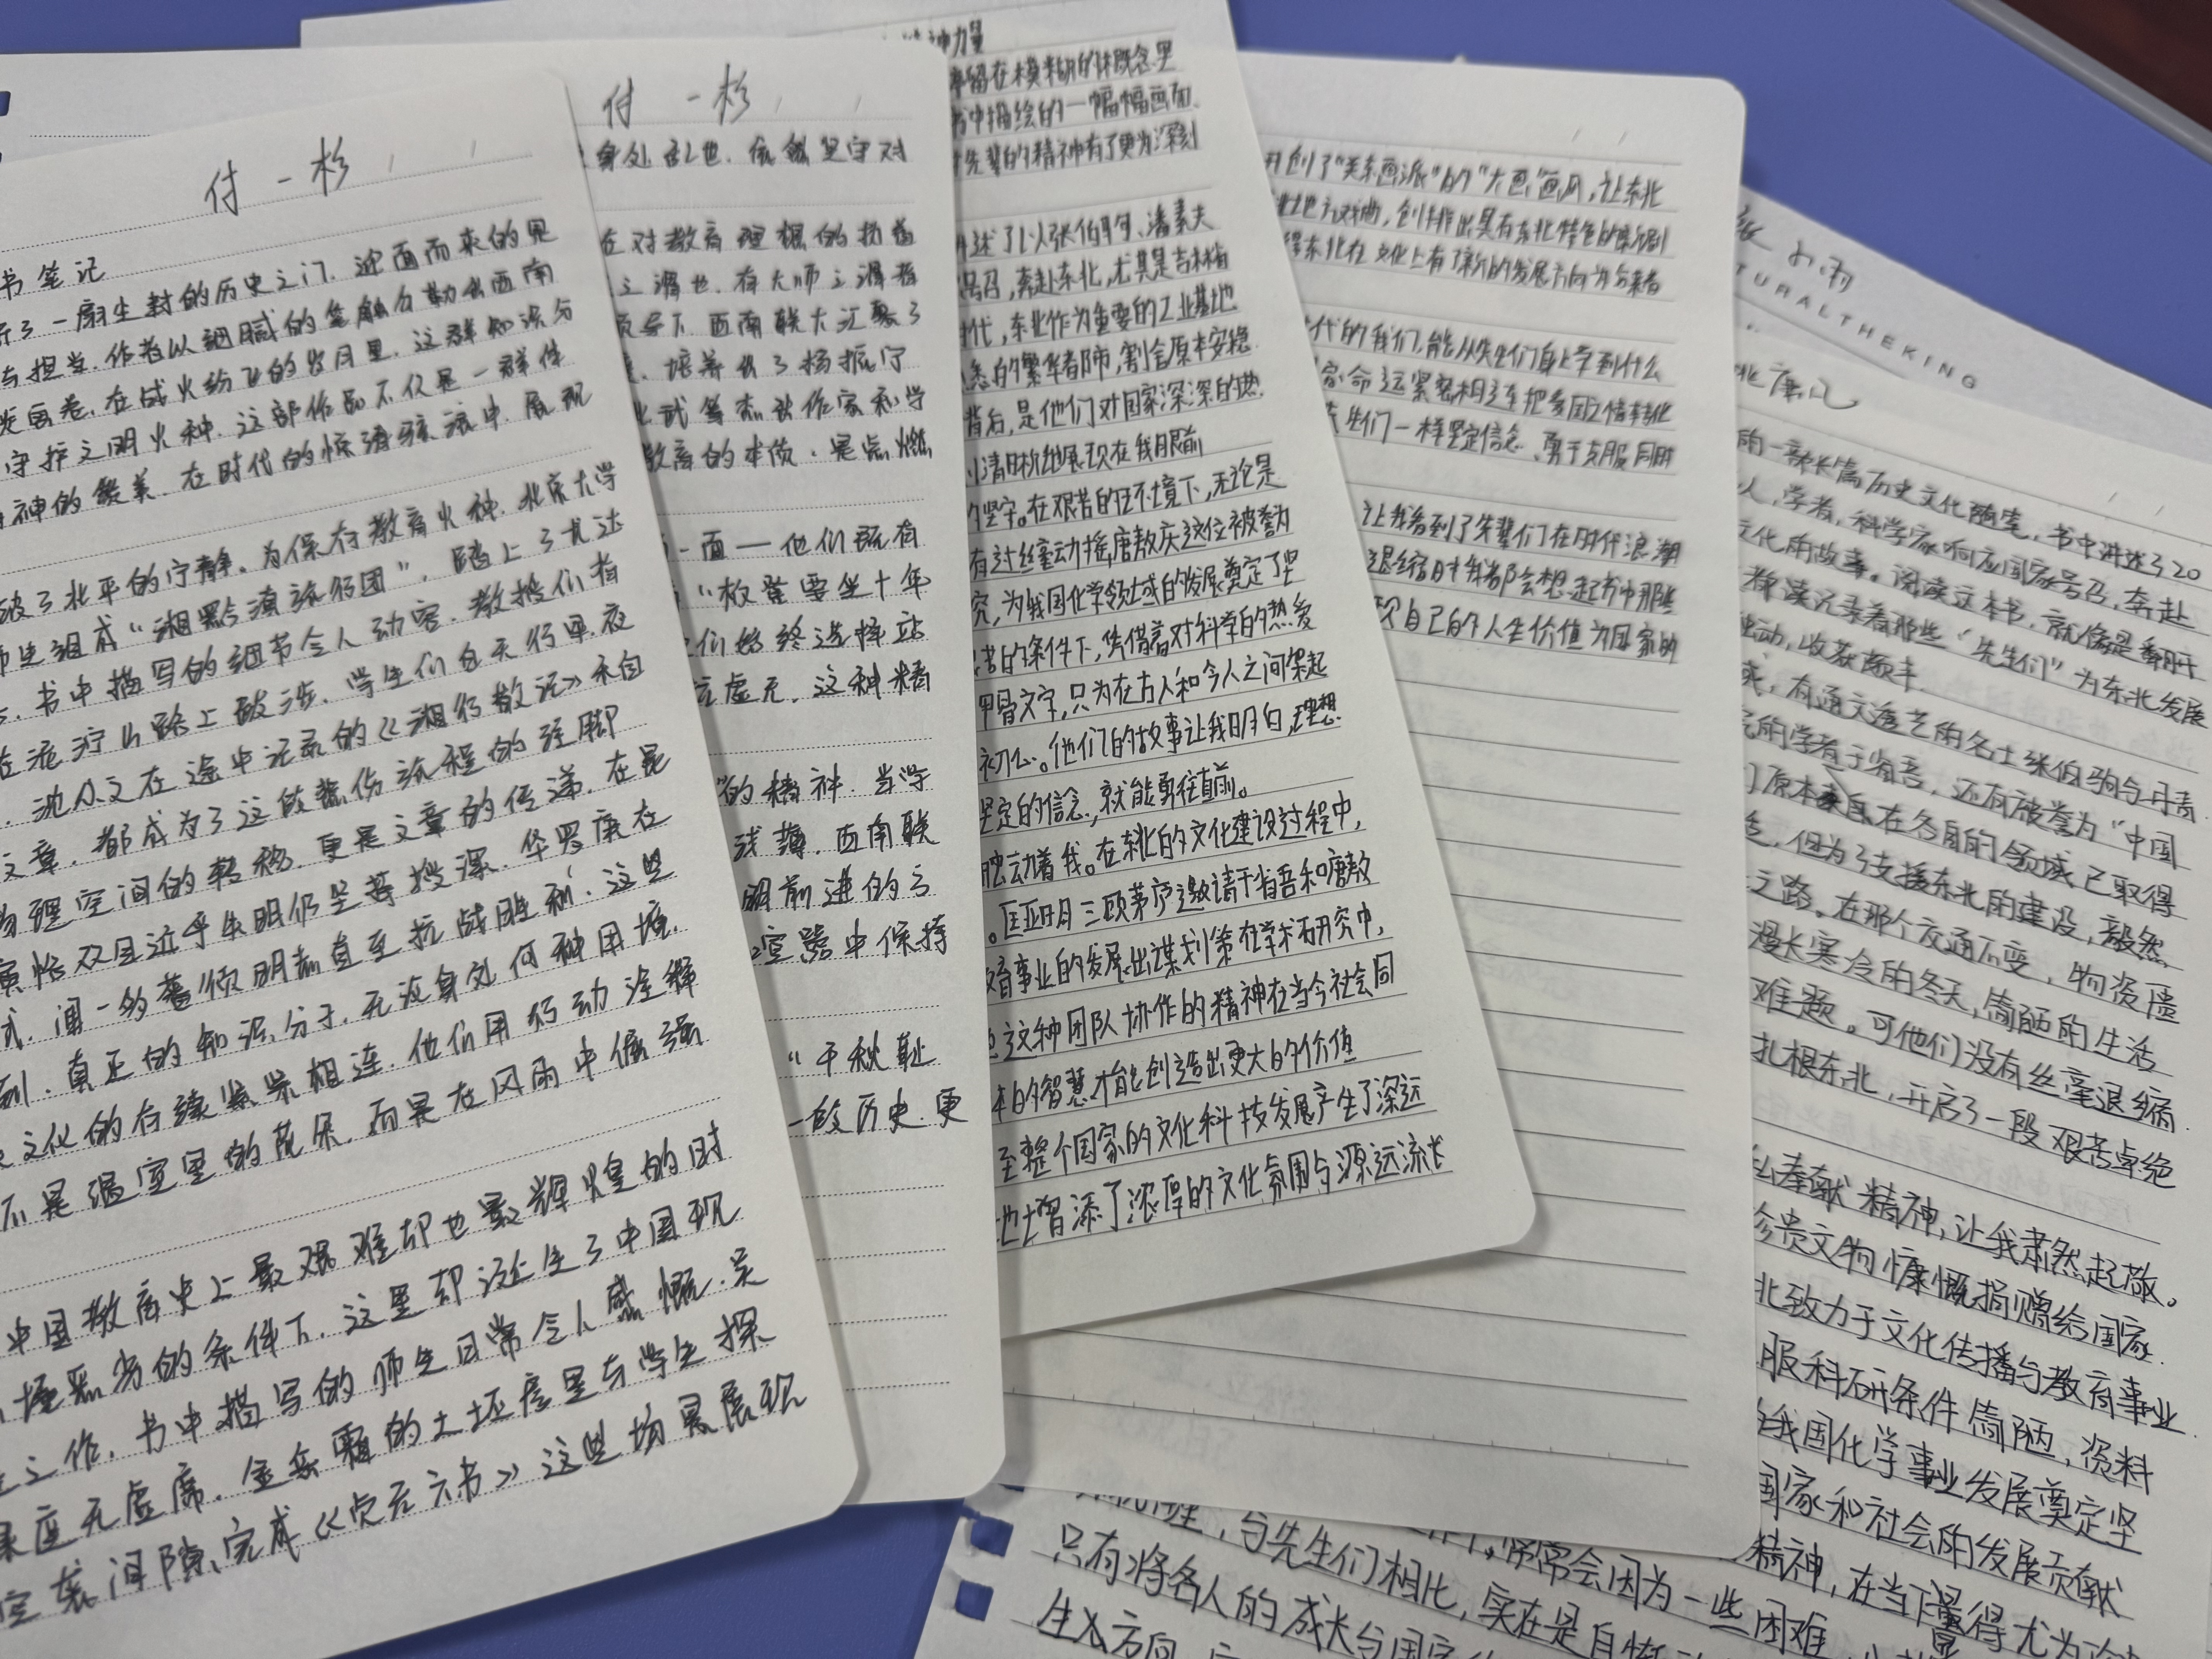 付一杉
书笔记
了一扇尘封的历史之门.迎面而来的是
与担当.作者以细腻的笔触勾勒出西南
画卷.在战火纷飞的岁月里.这群知识分
守护文明火种.这部作品不仅是一群件
神的赞美.在时代的惊涛骇浪中.展现
破了北平的宁静.为保存教育火种.北京大学
师生组成"湘黔滇旅行团".踏上了尤达
书中描写的细节令人动容.教授们有
在泥泞山路上跋涉.学生们白天行军.夜
沈从文在途中记录的《湘行散记》和自
文章.都成为了这段悲伤旅程的注脚
物理空间的转移.更是文章的传递.在昆
寅恪双目近乎失明仍坚持授课.华罗庚在
式.闻一多蓄须明志直至抗战胜利.这些
刻.真正的知识分子.无论身处何种困境.
文化的存续紧紧相连.他们用行动诠释
不是温室里的花朵.而是在风雨中倔强
中国教育史上最艰难却也最辉煌的时
的条件下.这里却诞生了中国现
之作.书中描写的师生日常令人感慨.吴
座无虚席.金岳霖的土坯房里与学生探
空袭间隙,完成《贞元六书》这些场景展现
付一杉
身处乱世.依然坚守对
在对教育理想的执着
之谓也.有大师之谓者
领导下.西南联大汇聚了
培养出了杨振宁
武等杰出作家和学
教育的本质.是点燃
一面—他们既有
"板凳要坐十年
们始终选择站
虚无.这种精
的精神.当学
浅薄.西南联
明前进的方
空器中保持
"千秋耻
一段历史.更
神力量
停留在模糊的概念里
书中描绘的一幅幅画面
先辈的精神有了更为深刻
讲述了以张伯驹、潘素夫
号召,奔赴东北,尤其是吉林省
时代,东北作为重要的工业基地
悉的繁华都市,割舍原本安稳
背后,是他们对国家深深的热
清晰地展现在我眼前
的坚守。在艰苦的环境下,无论是
有过丝毫动摇,唐敖庆这位被誉为
究,为我国化学领域的发展奠定了坚
苦的条件下,凭借着对科学的热爱
甲骨文字,只为在古人和今人之间架起
初心。他们的故事让我明白,理想
坚定的信念,就能勇往直前。
触动着我。在东北的文化建设过程中,
匡亚明三顾茅庐邀请于省吾和唐敖
教育事业的发展出谋划策在学术研究中,
这种团队协作的精神在当今社会同
体的智慧才能创造出更大的价值
至整个国家的文化科技发展产生了深远
地增添了浓厚的文化氛围与源远流长
开创了"关东画派"的"大画"画风,让东北
地方戏曲,创排出具有东北特色的
得东北在文化上有了新的发展方向为后来者
代的我们,能从先生们身上学到什么
家命运紧密相连把爱国之情转化
先生们一样坚定信念、勇于克服困难
让我看到了先辈们在时代浪潮
退缩时我都会想起书中那些
现自己的人生价值为国家的
TURALTHEKING
的一部长篇历史文化随笔,书中讲述了20
人,学者,科学家响应国家号召,奔赴
文化的故事。阅读这本书,就像是翻开
读记录着那些"先生们"为东北发展
触动,收获颇丰.
有通文达艺的名士张伯驹与丹青
的学者于省吾,还有被誉为"中国
们原本来自在各自的领域已取得
但为了支援东北的建设,毅然
之路。在那个交通不变,物资匮
漫长寒冷的冬天,简陋的生活
难题。可他们没有丝毫退缩
扎根东北,开启了一段艰苦卓绝
私奉献精神,让我肃然起敬。
珍贵文物慷慨捐赠给国家.
北致力于文化传播与教育事业.
服科研条件简陋,资料
我国化学事业发展奠定坚
国家和社会的发展贡献
精神,在当下显得尤为
与先生们相比,常常会因为一些困难
只有将各人的成长与国家
实在是自惭
生入方向